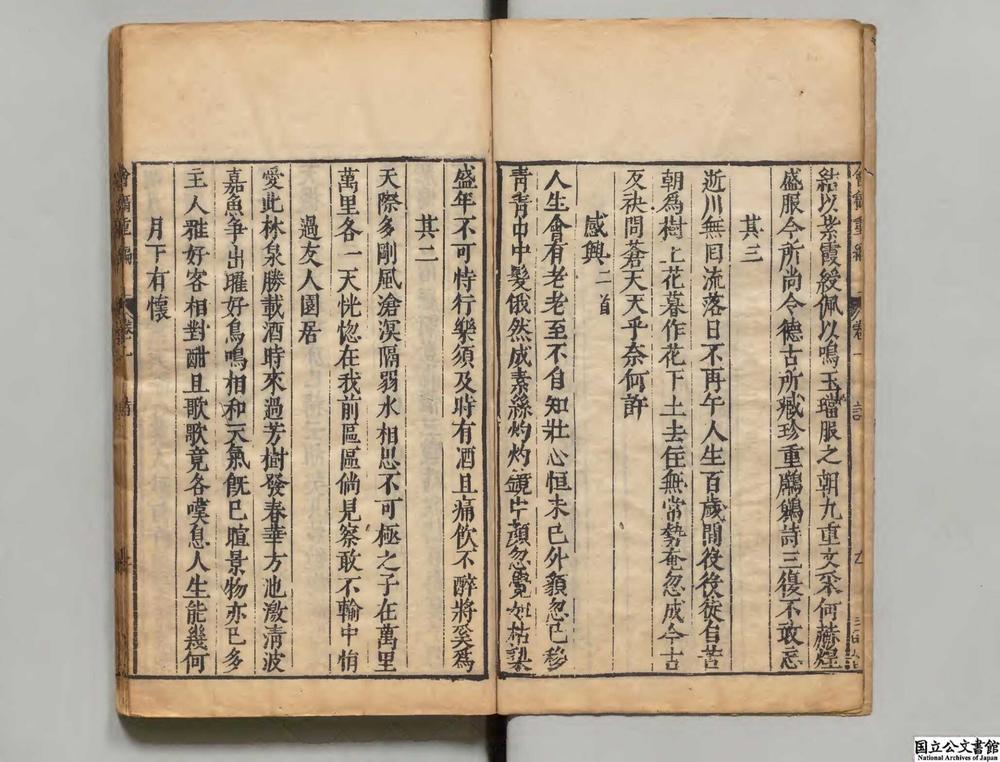 結以紫霞綬佩以鳴玉璫服之朝九重文采何蘤煌
盛服今所尚令德古所臧珍重鷫鸘詩三復不敢忘
其三
逝川無囘流落日不再午人生百歲間役役徒自苦
朝為樹上花暮作花下土去住無常勢奄忽成今古
反袂問蒼天天乎奈何許
感興二首
人生會有老老至不自知壯心恒未已外貌忽已移
青青中髮俄然成素絲灼灼鏡中顏忽覺如枯棃
盛年不可恃行樂須及時有酒且痛飲不醉將奚為
其二
天際多剛風滄溟隔弱水相思不可極之子在萬里
萬里各一天恍惚在我前區區倘見察敢不輸中悁
過友人園居
愛此林泉勝載酒時來過芳樹發春華方池激清波
嘉魚爭出躍好鳥鳴相和天氣旣已暄景物亦已多
主人雅好客相對酣且歌歌竟各嘆息人生能幾何
月下有懷
重編
卷十
詩
国立公文書館
National Archives of Japan